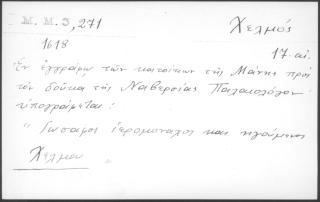 Μ. Μ. 3, 271
Χελμός
1618
17. αι.
Εν εγγράφω των κατοίκων της Μάνης προς
τον δούκα της Ναβερσίας Παλαιολόγον
υπογράφεται:
"Ιωσαφ ιερομοναχος και ηγούμενος
Χελμου